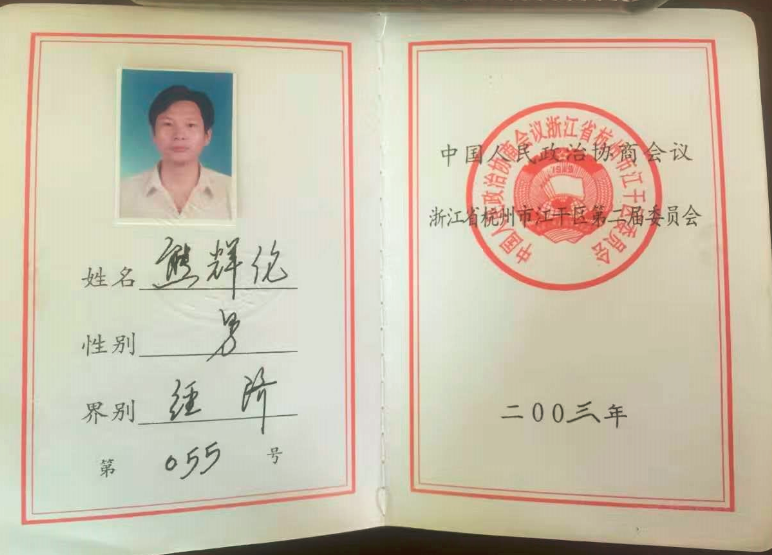 姓名 熊辉伦
性别 男
界别 经济
第 055 号
中国人民政治协商会议
浙江省杭州市江干区第二届委员会
中国人民政治协商会议浙江省杭州市江干区委员会
二00三年